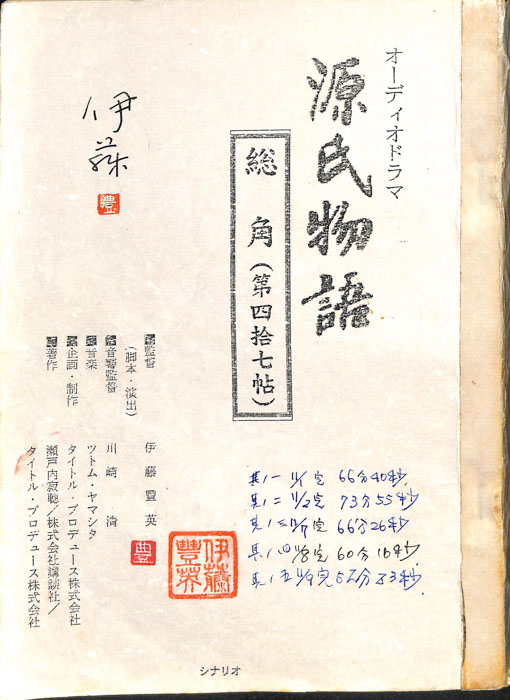 オーディオドラマ
源氏物語
総角(第四拾七帖)
伊藤
豊
監督 伊藤豊英
(脚本・演出)
音響監督 川崎清
音楽 ツトム・ヤマシタ
企画・制作 タイトル・プロデュース株式会社
著作 瀬戸内寂聴/株式会社講談社/
タイトル・プロデュース株式会社
豊
伊藤豊英
其ノ一 11/1完 66分40秒
其ノ二 11/2完 73分55秒
其ノ三 完 66分26秒
其ノ四 11/8完 60分10秒
其ノ五 11/9完 52分33秒
シナリオ